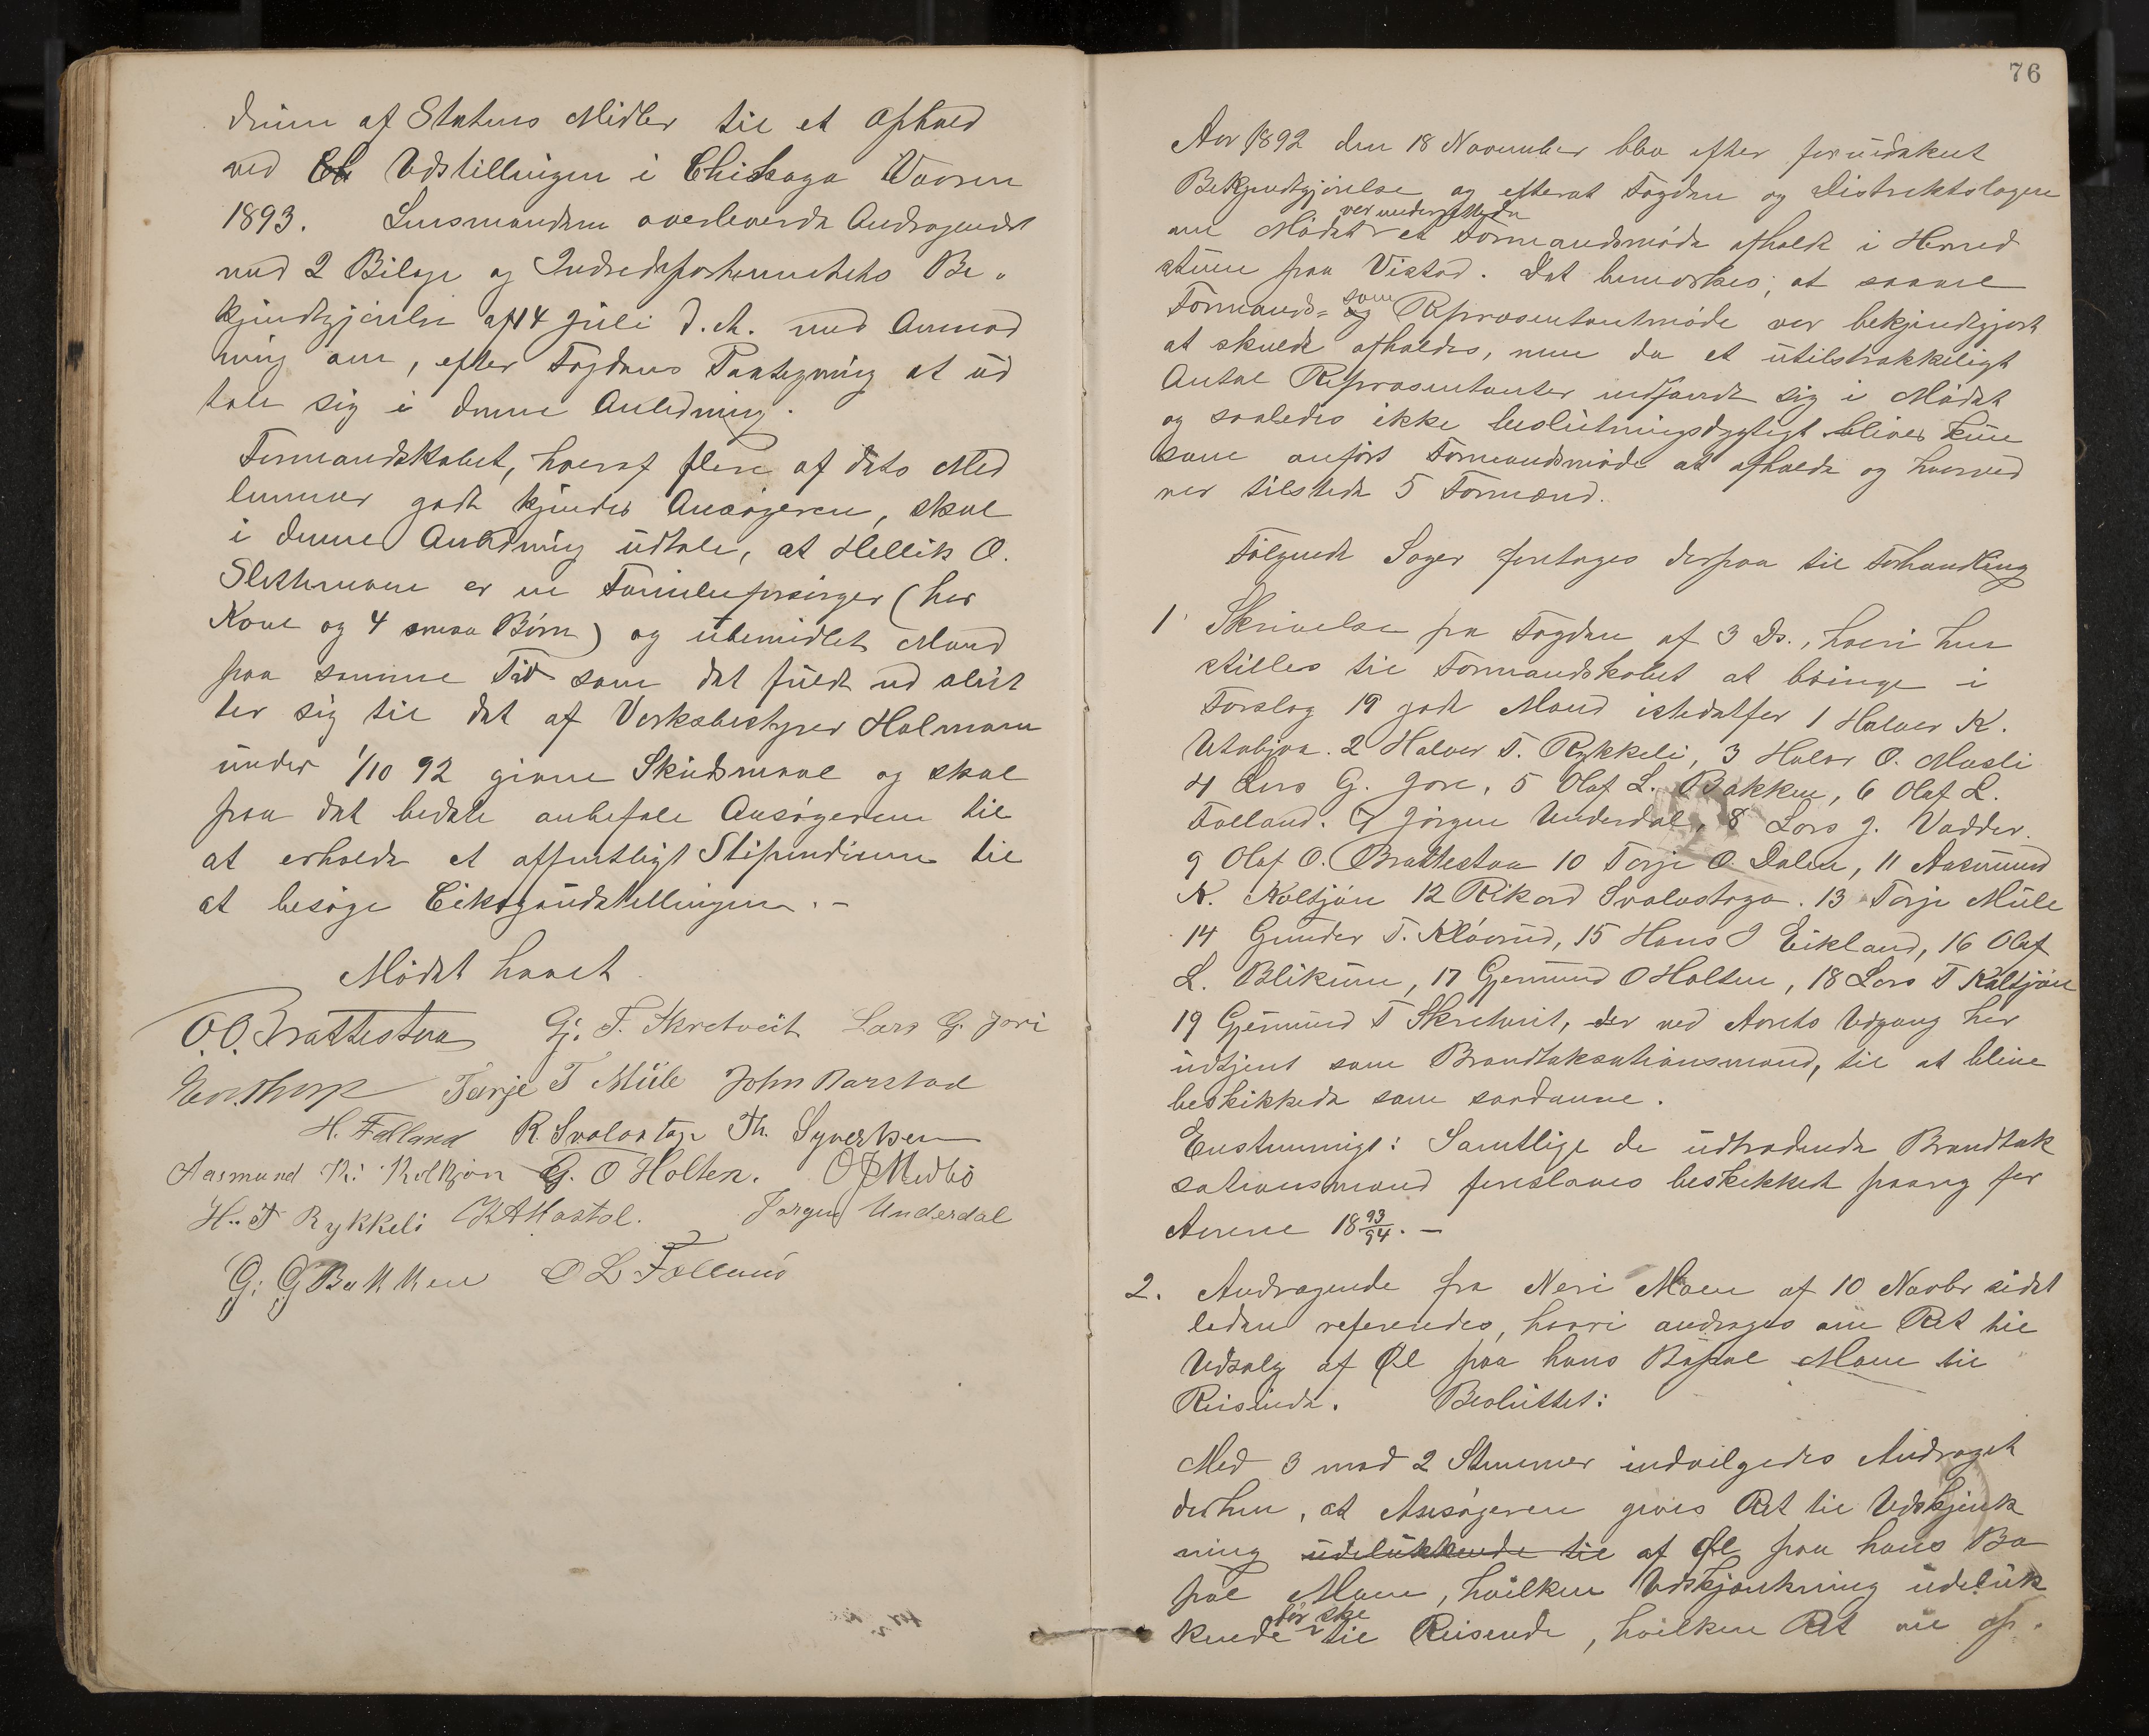 dium af Statens Midler til et Ophold
ved Udstillingen i Chikago Vaaren
1893. Lensmanden overleverede Andragendet
med 2 Bilage og Indredepartementets Be-
kjendtgjørelse af 14 Juli d. A. med Anmod
ning om, efter Fogdens Paategning at ud
tale sig i denne Anledning.
Formandskabet, hvoraf flere af dets Med
lemmer godt kjender Ansøgeren, skal
i denne Anledning udtale, at Hellik O.
Slettemoen er en Familieforsørger (har
Kone og 4 smaa Børn) og ubemidlet Mand
paa samme Tid som det fuldt ud slut
ter sig til det af Verksbestyrer Holmsen
under 1/10 92 givne Skudsmaal og skal
paa det bedste anbefale Ansøgeren til
at erholde et offentligt Stipendium til
at besøge Cikagoudstillingen. -
Mødet hævet
O.O. Brattestaa Gj. T. Skretveit Lars G. Jori
Tarje T Mule John Barstad
H. Falland R. Svalastog Th. Syversen
Aasmund K. Koltjøn G. O Holten. O J Medbø
H. T Rykkeli K A Mastol. Jørgen Underdal
G. G Bakken O L Følland
76
Aar 1892 den 18 November blev efter forudskeet
Bekjendtgjørelse og efterat Fogden og Distriktslægen
om Mødet var underrettede et Formandsmøde afholdt i Herred
stuen paa Vistad. Det bemærkes, at saavel
Formands- som Repræsentantmøde var bekjendtgjort
at skulde afholdes, men da et utilstrækkeligt
Antal Repræsentanter indfandt sig i Mødet
og saaledes ikke beslutningsdygtigt bliver kun
som anført Formandsmøde at afholde og hvorved
var tilstede 5 Formænd.
Følgende Sager foretages derpaa til Forhandling
1 Skrivelse fra Fogden af 3 Ds., hvori hen
stilles til Formandskabet at bringe i
Forslag 19 gode Mænd istedetfor 1 Halvor K.
Utabjoa. 2 Halvor T. Rykkeli, 3 Halvor O. Musli
4 Lars G. Jore, 5 Olaf L. Bakken, 6 Olaf L.
Følland. 7 Jørgen Underdal, 8 Lars J. Vadder.
9 Olaf O. Brattestaa 10 Tarje O. Dalen, 11 Aasmund
K. Koltjøn 12 Rikard Svalastoga. 13 Tarje Mule
14 Gunder T. Kløvrud, 15 Hans J Eikland, 16 Olaf
L. Blikum, 17 Gjermund O Holten, 18 Lars T Koltjøn
19 Gjermund T Skretveit, der ved Aarets Udgang har
udtjent som Brandtaksationsmænd, til at blive
beskikkede som saadanne.
Enstemmigt: Samtlige de udtrædende Brandtak
sationsmænd foreslaaes beskikket paany for
Aarene 18 93/94. -
2. Andragende fra Neri Moen af 10 Novbr sidst
leden refereredes, hvori andrages om Ret til
Udsalg af Øl paa hans Bopæl Moen til
Reisende. Besluttet:
Med 3 mod 2 Stemmer indvilgedes Andraget
derhen, at Ansøgeren gives Ret til Udskjænk
ning udelukkende til af Øl paa hans Bo
pæl Moen, hvilken Udskjænkning udeluk
kende bør ske til Reisende, hvilken Ret